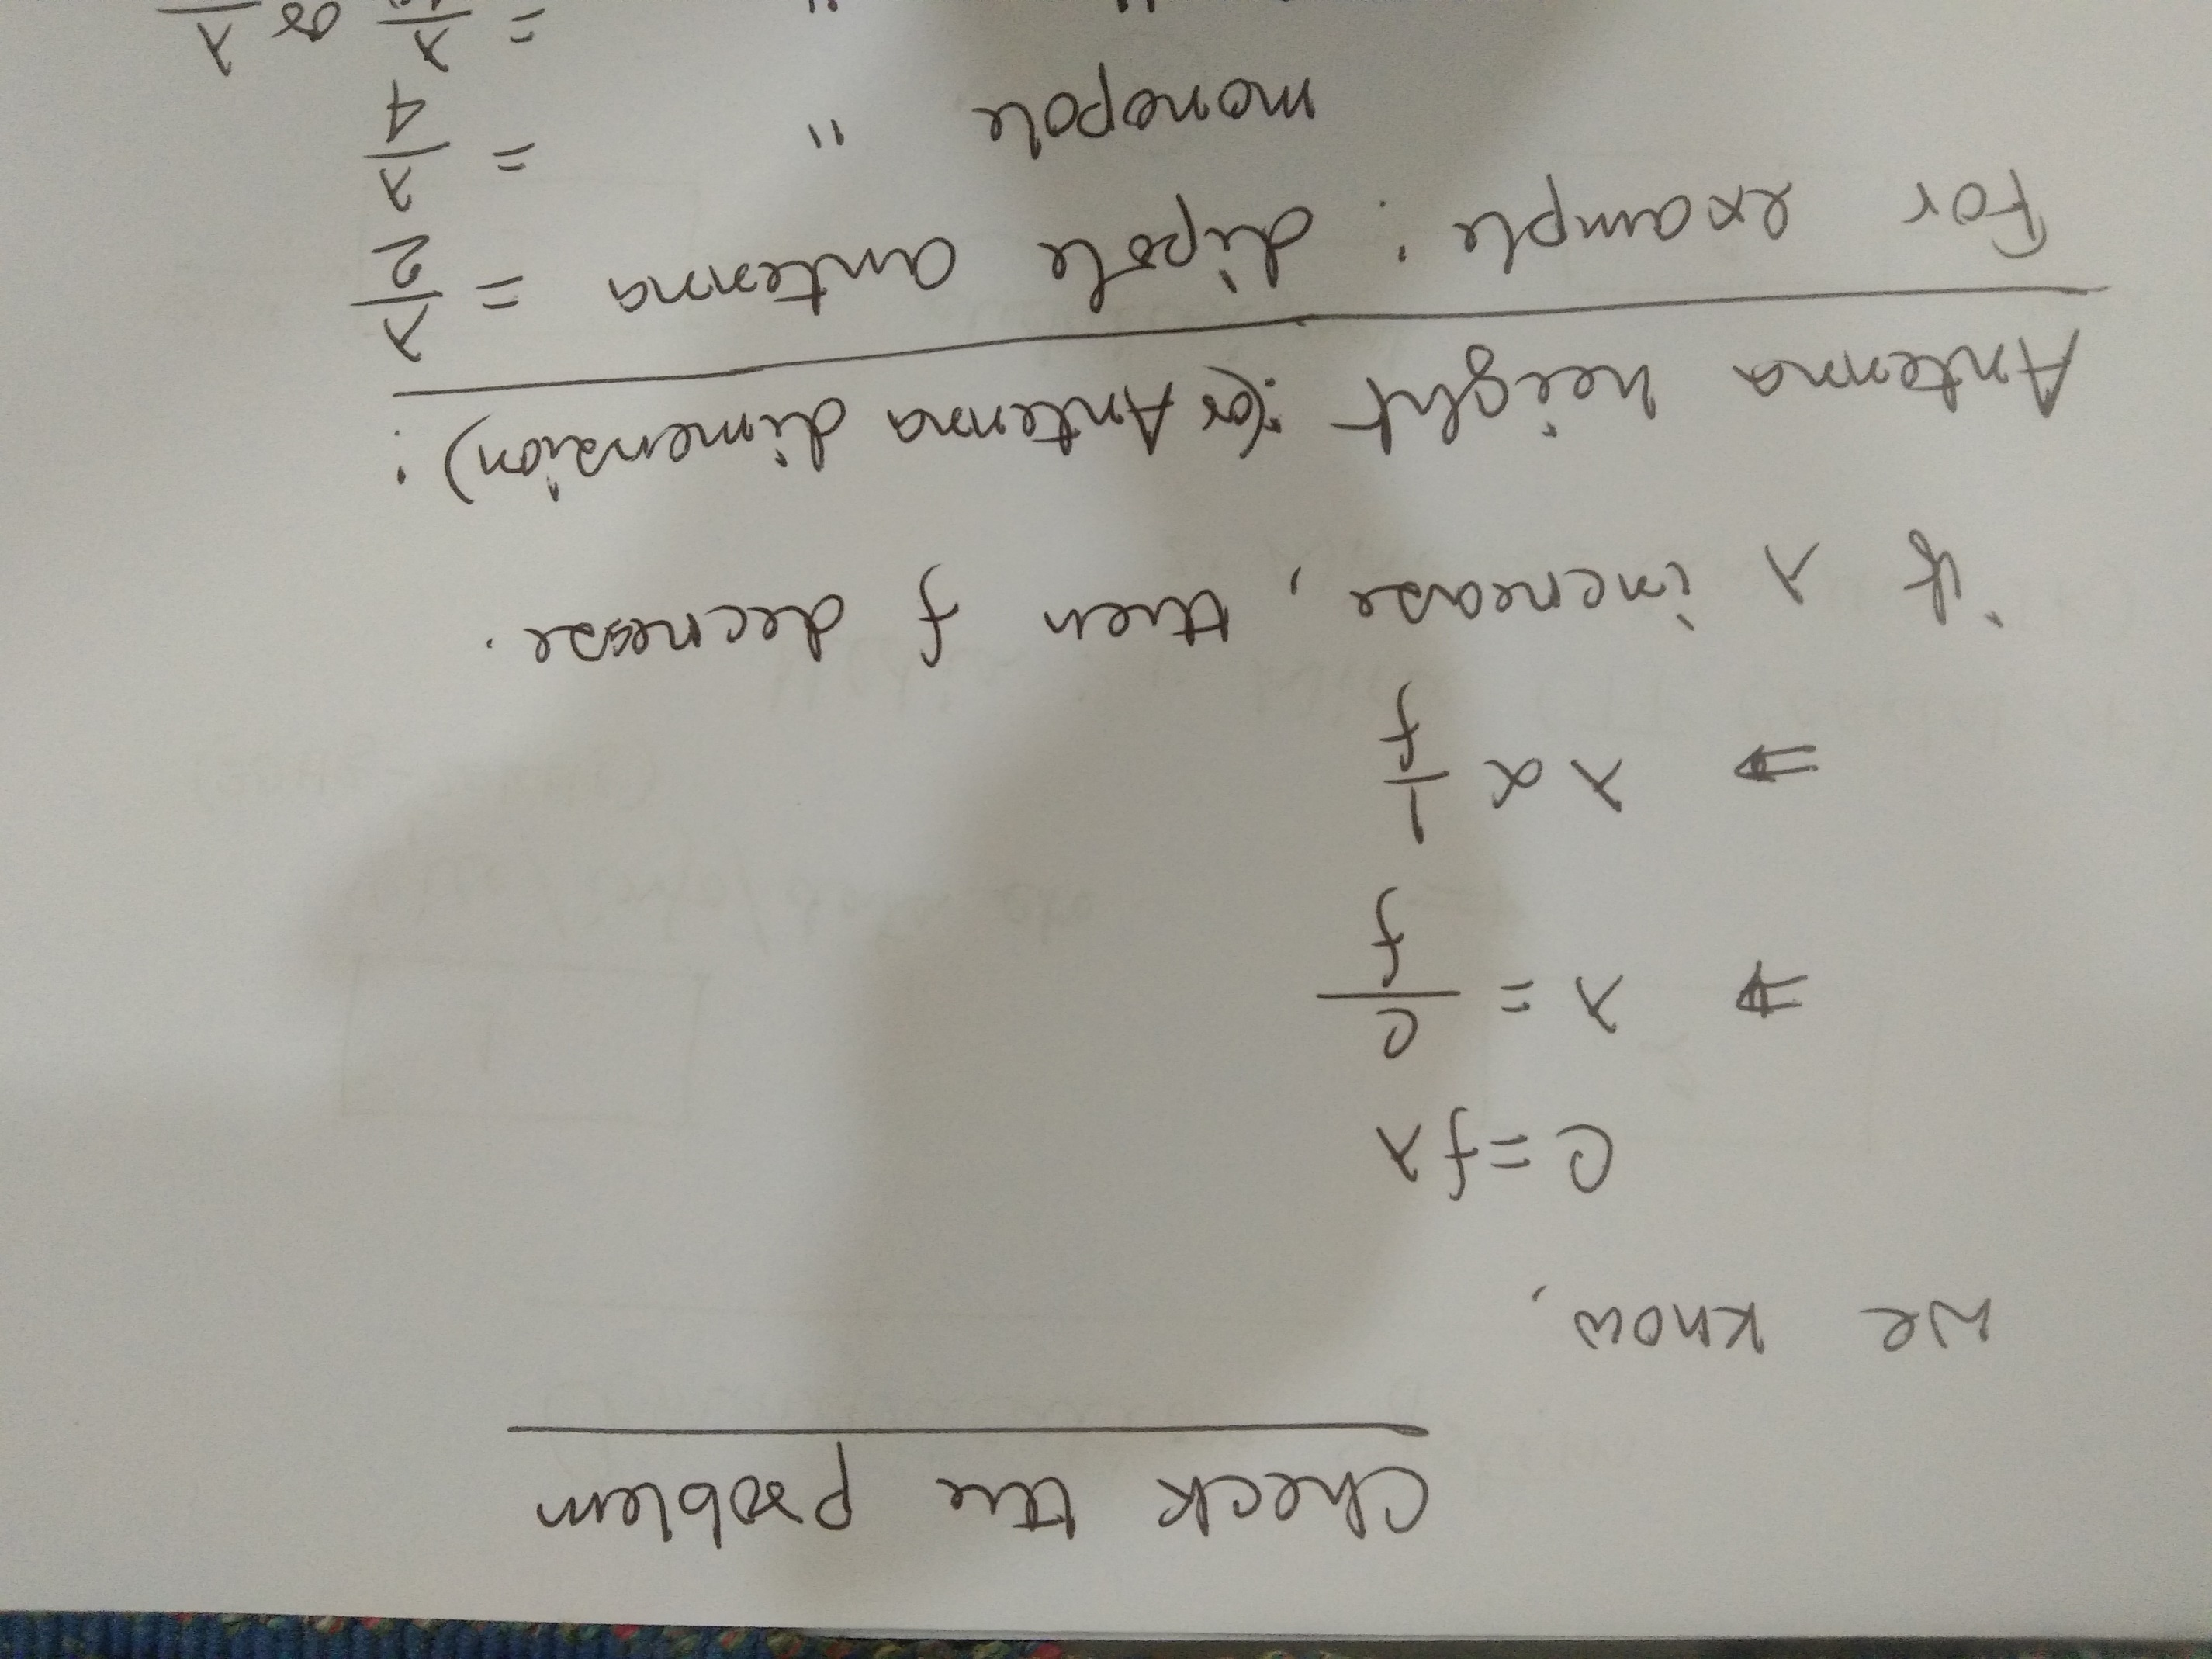 Check the problem
We know,
C = fλ
⇒ λ = C/f
⇒ λ ∝ 1/f
if λ increase, then f decrease.
Antenna height :(or Antenna dimension) :
For example : dipole antenna = λ/2
monopole " = λ/4
" = λ/ or λ